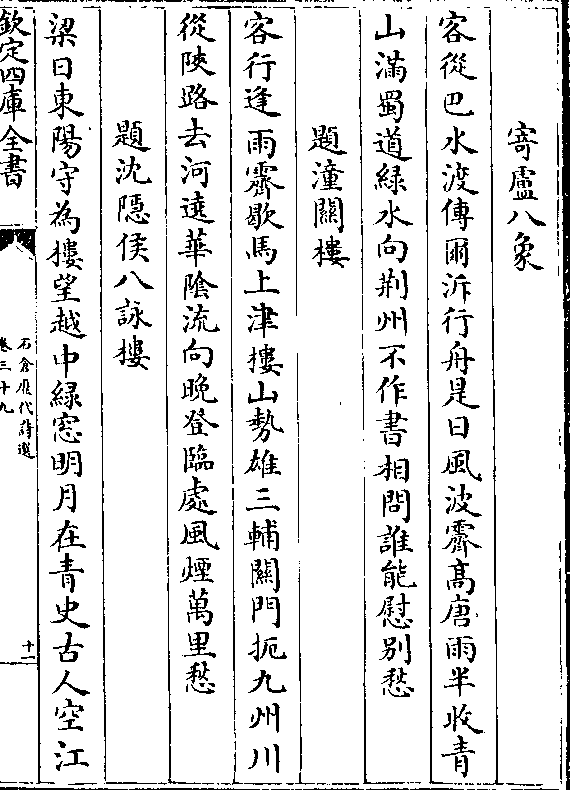 寄盧八象
客從巴水渡傳爾泝行舟是日風波霽高唐雨半收青
山滿蜀道綠水向荆州不作書相問誰能慰別愁
題潼關樓
客行逢雨霽歇馬上津樓山勢雄三輔關門扼九州川
從陜路去河遶華陰流向晚登臨處風煙萬里愁
題沈隱侯八詠樓
梁日東陽守為樓望越中綠窓明月在青史古人空江
欽定四庫全書
石倉歷代詩選
卷三十九
十二